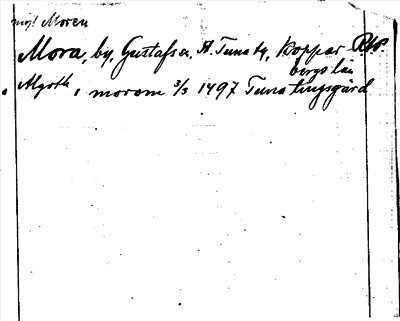 Moren
Mora, by, Gustafs sn, St. Tuna tg, Koppar
bergs län
Algoth, i morom 3/3 1497 Tuna tingsgård